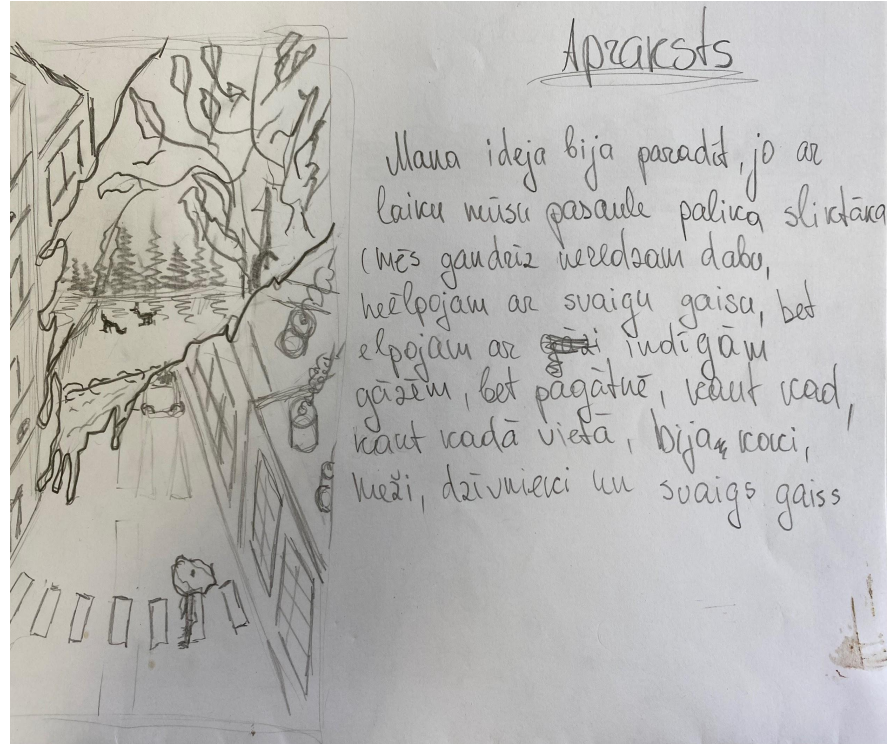 Apraksts
Mana ideja bija paradīt, jo ar
laiku mūsu pasaule palika sliktāka
(mēs gandrīz neredzam dabu,
neēlpojam ar svaigu gaisu, bet
elpojam ar indīgām
gāzēm, bet pagātnē, kaut kad,
kaut kadā vietā, bija koki,
meži, dzīvnieki un svaigs gaiss